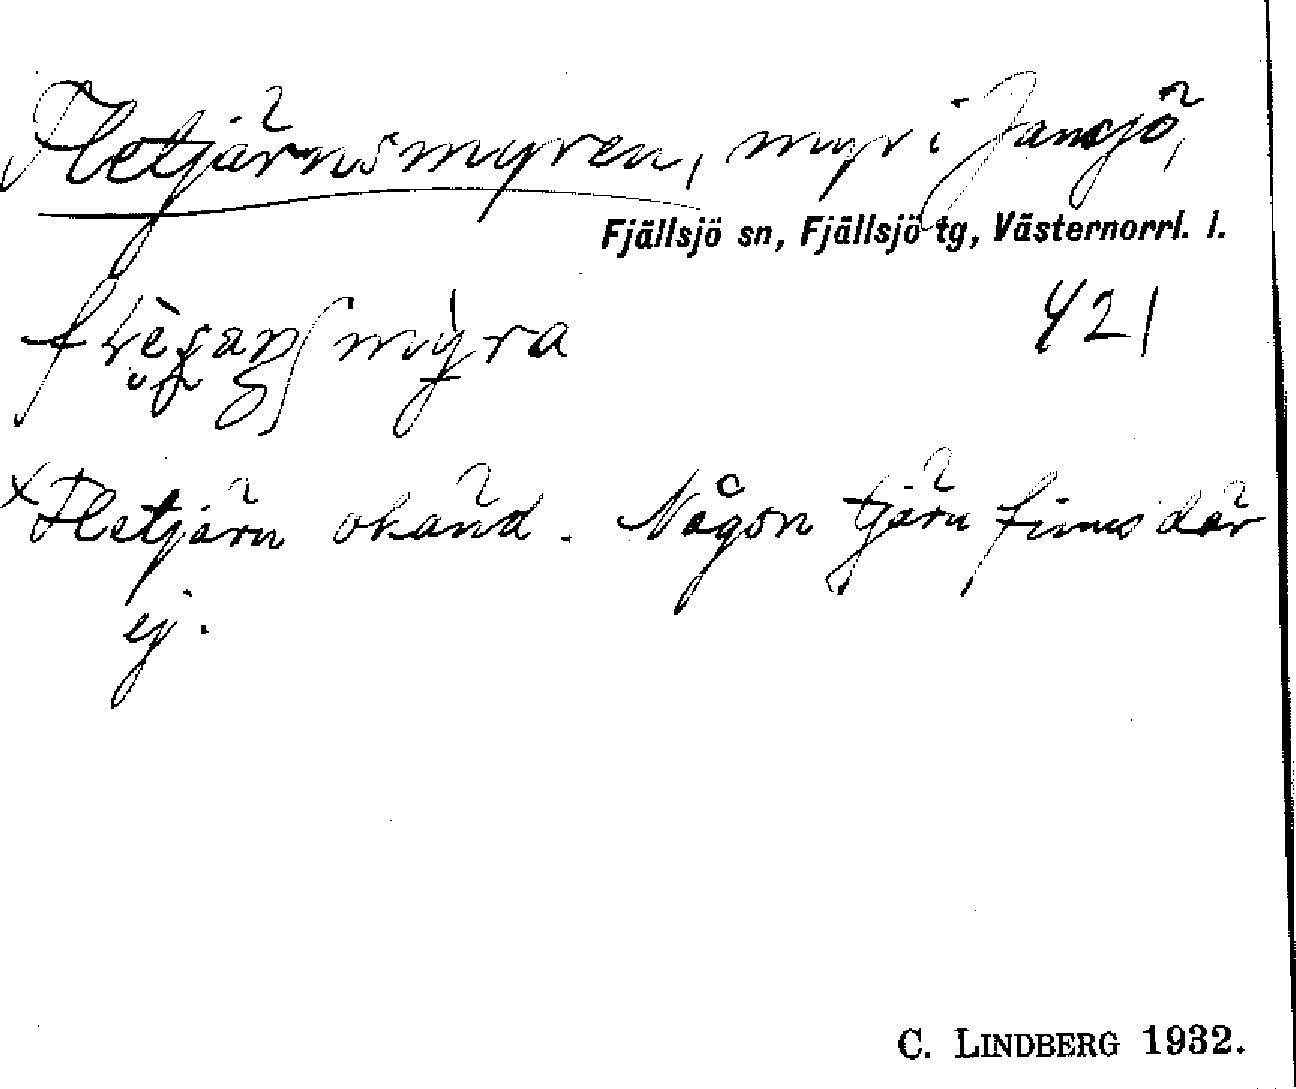 Fletjärnsmyren, myr i Jansjö,
Fjällsjö sn, Fjällsjö tg, Västernorrl. l.
421
× Fletjärn okänd. Någon tjärn finns där
ej.
C. LINDBERG 1932.